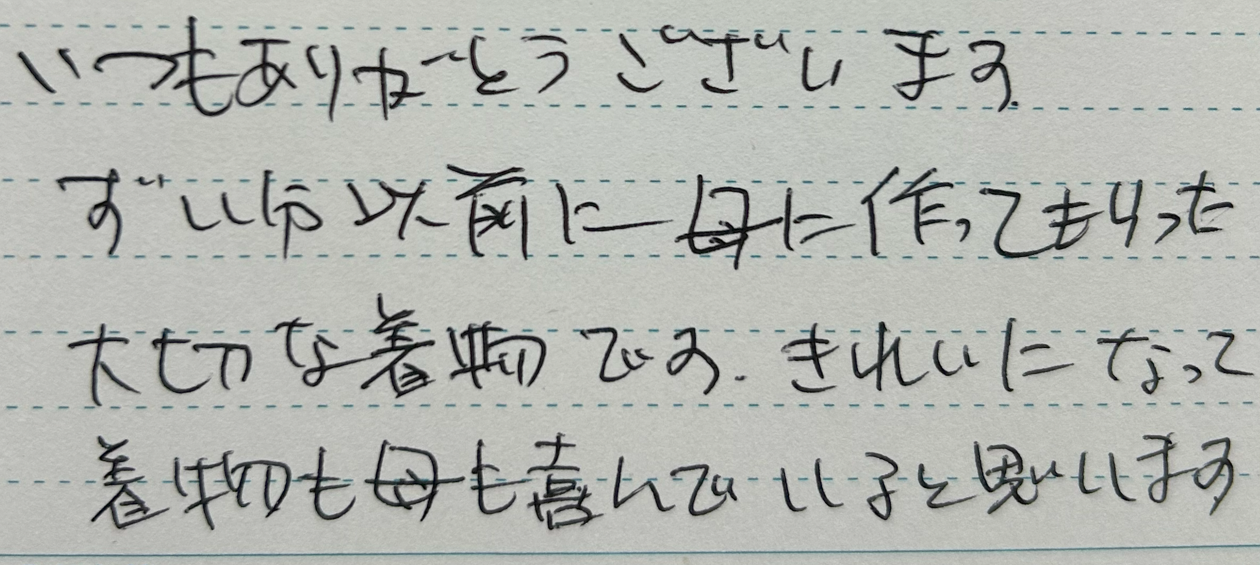 いつもありがとうございます.
ずい分以前に母に作ってもらった
大切な着物です. きれいになって
着物も母も喜んでいると思います